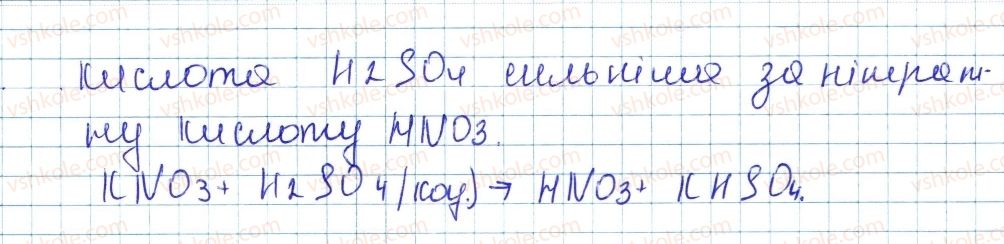 кислота H2SO4 сильніша за нітрат-
ну кислоту HNO3.
KNO3 + H2SO4 (коц.) → HNO3 + KHSO4.